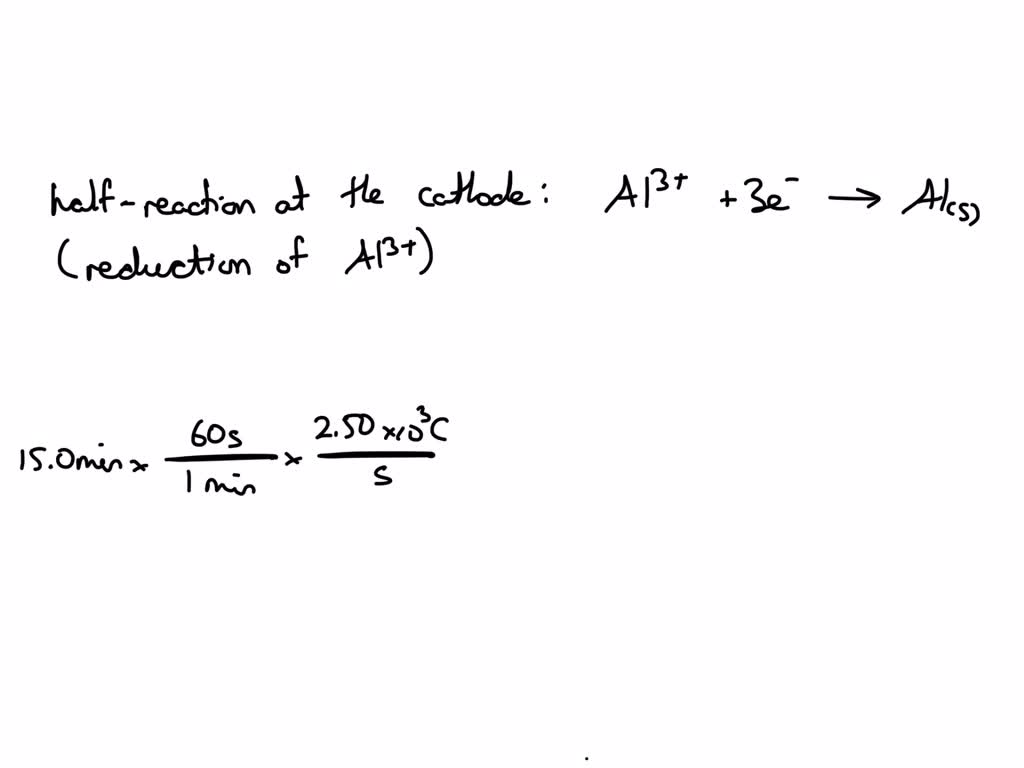 half-reaction at the cathode: Al³⁺ + 3e⁻ → Al(s)
(reduction of Al³⁺)
15.0min × 60s / 1 min × 2.50 ×10³C / s